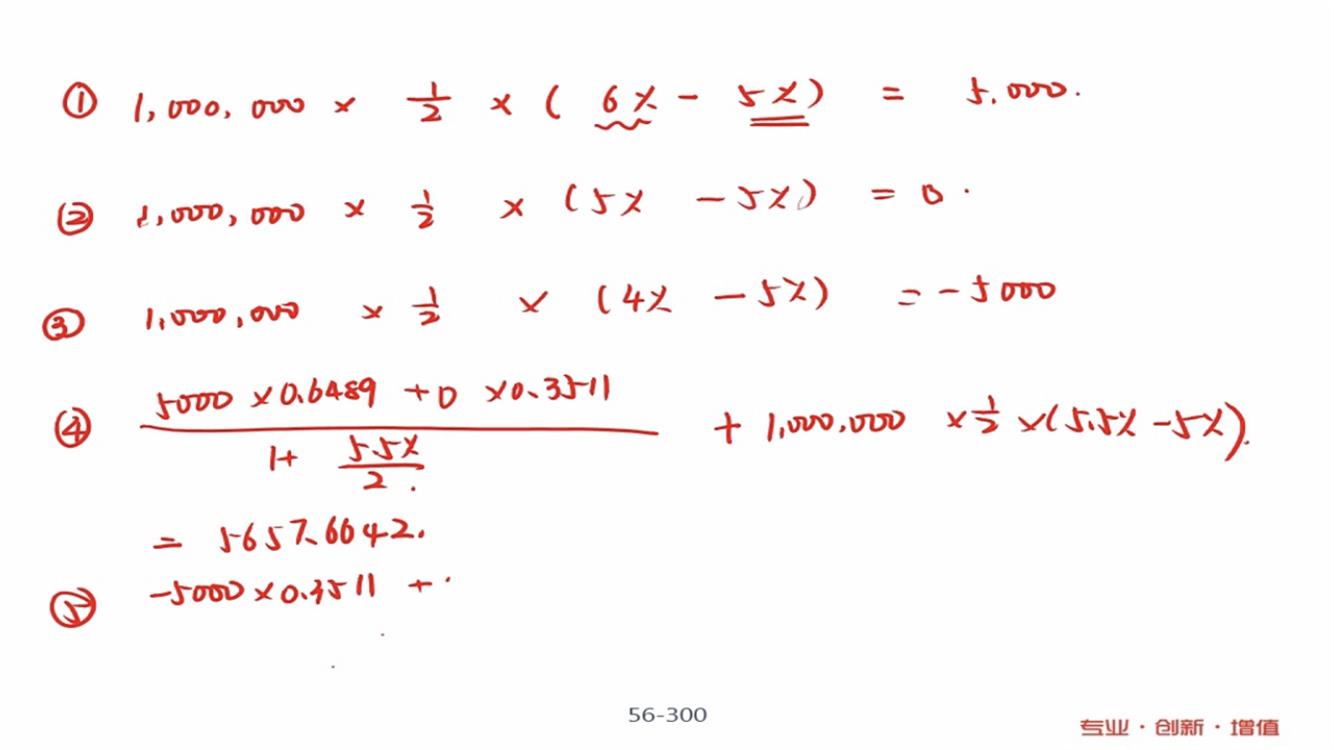 ① 1,000,000 × 1/2 × ( 6% - 5% ) = 5,000.
② 1,000,000 × 1/2 × (5% - 5%) = 0.
③ 1,000,000 × 1/2 × (4% - 5%) = -5000
④ (5000 × 0.6489 + 0 × 0.3511) / (1 + 5.5%/2) + 1,000,000 × 1/2 × (5.5% - 5%).
= 5657.6642.
⑤ -5000 × 0.3511 +
56-300
专业·创新·增值